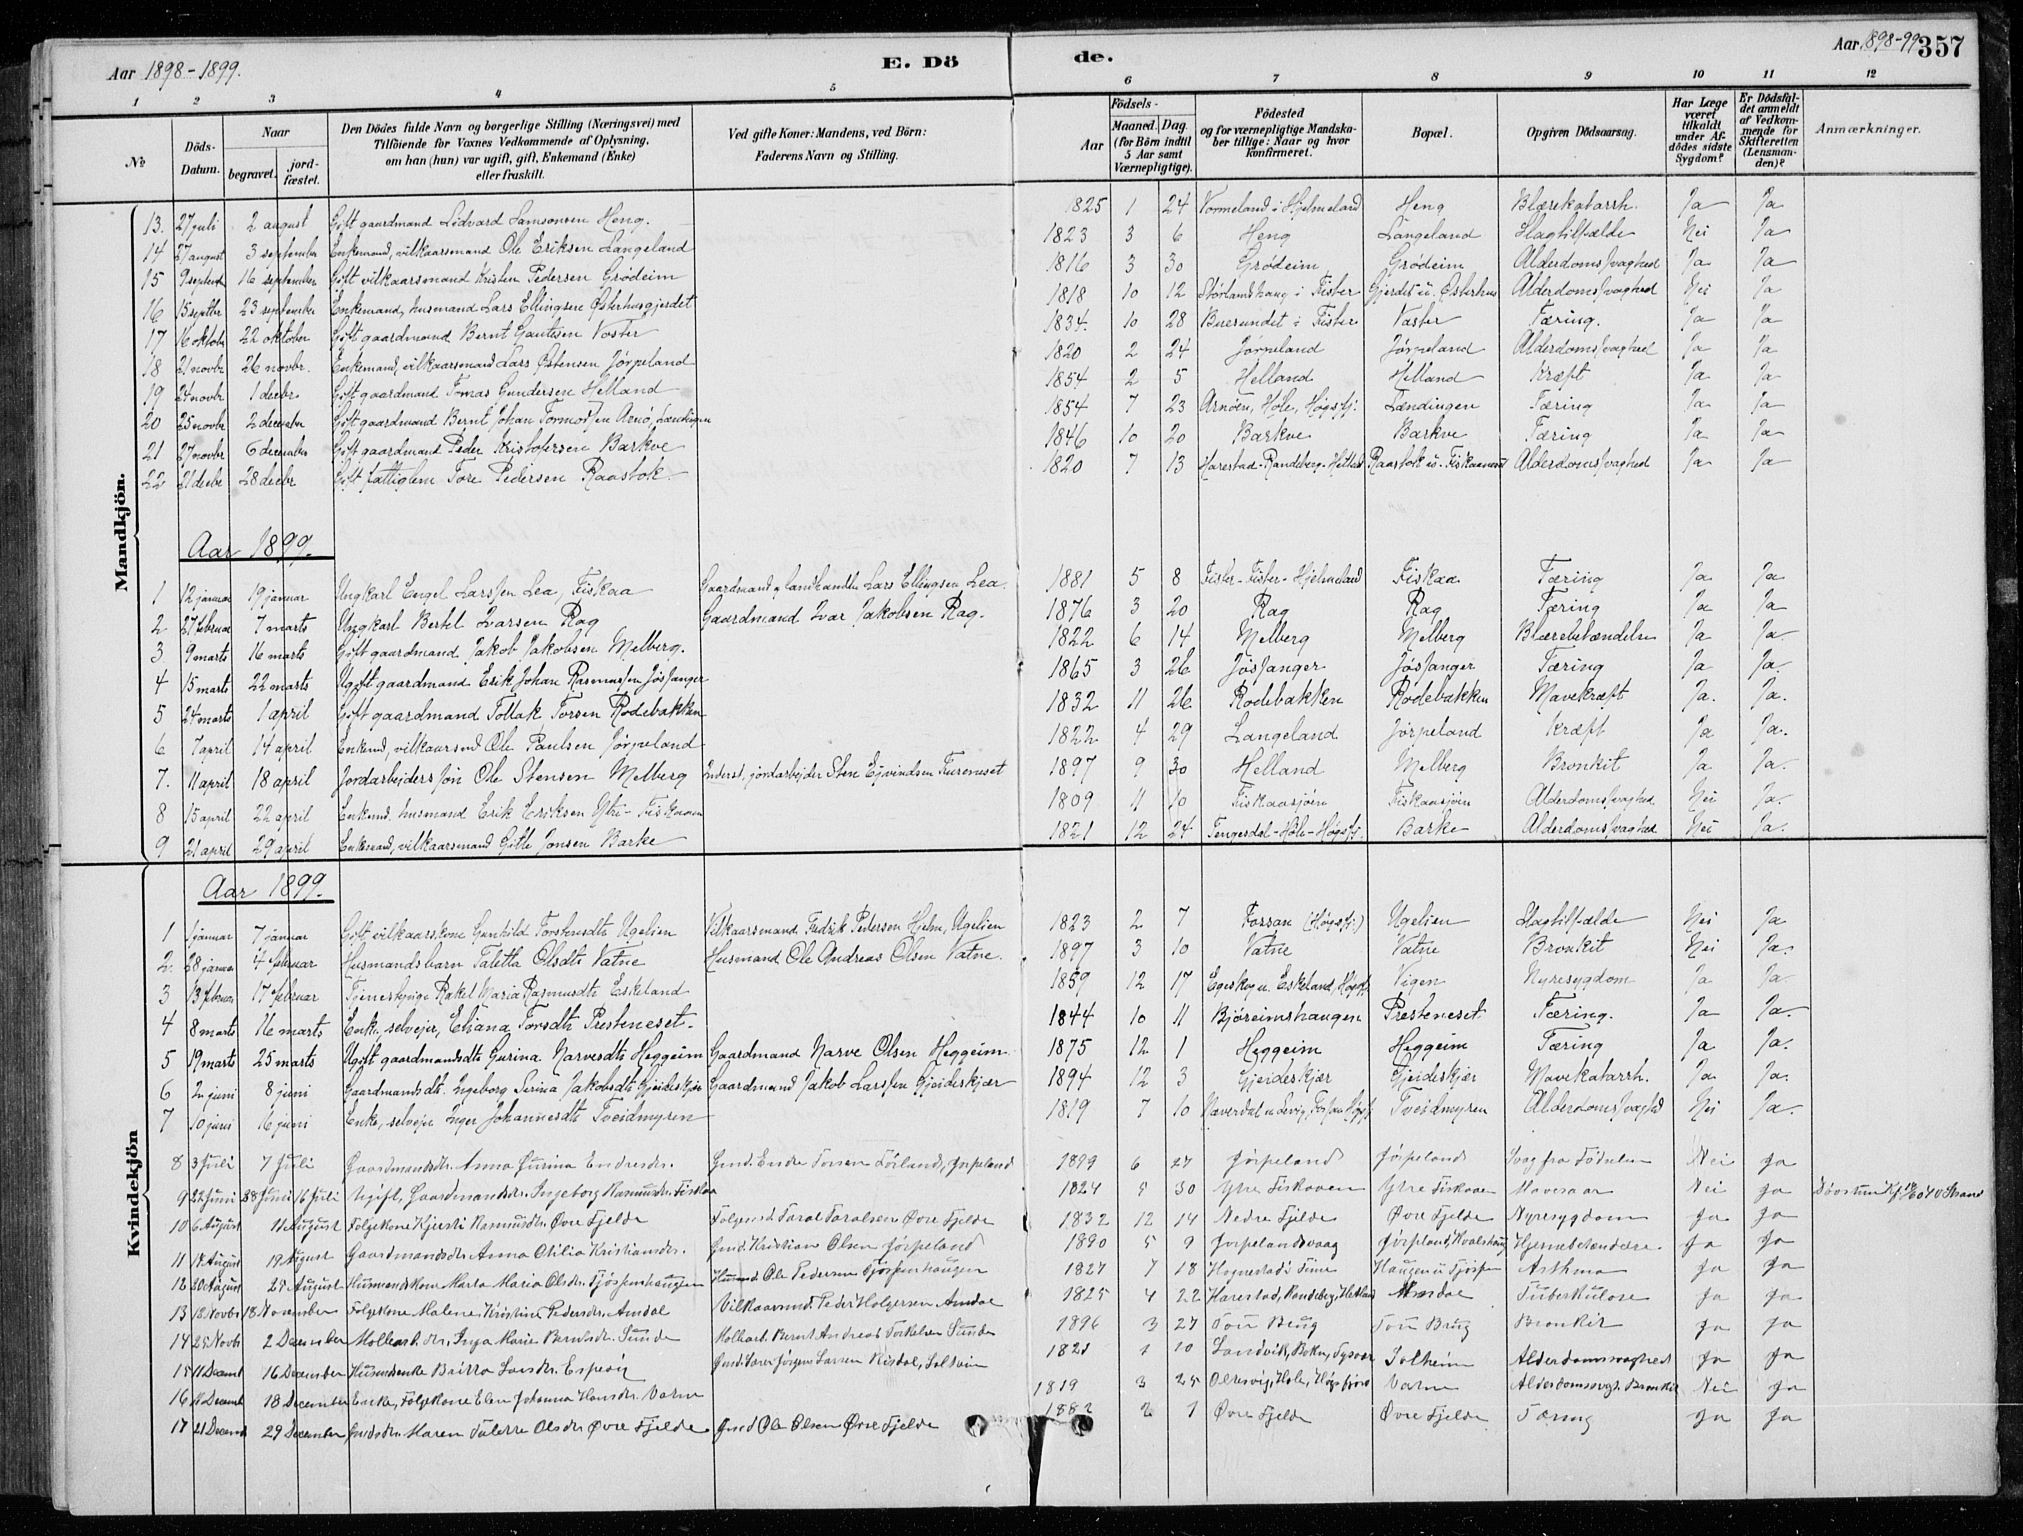 Aar 1898-1899.
E. Dö
de.
Aar 1898-99
357
1 2 3 4 5 6 7 8 9 10 11 12
№
Döds-Datum.
Naar
begravet.
jord-fæstet.
Den Dödes fulde Navn og borgerlige Stilling (Næringsvei) med
Tilföiende for Voxnes Vedkommende af Oplysning,
om han (hun) var ugift, gift, Enkemand (Enke)
eller fraskilt.
Ved gifte Koner: Mandens, ved Börn:
Faderens Navn og Stilling.
Födsels-
Aar
Maaned. Dag.
(for Börn indtil 5 Aar samt Værnepligtige).
Födested
og for værnepligtige Mandska-
ber tillige: Naar og hvor
konfirmeret.
Bopæl.
Opgiven Dödsaarsag.
Har Læge været tilkaldt under Af-dödes sidste Sygdom?
Er Dödsfal-det anmeldt af Vedkom-mende for Skifteretten (Lensman-den)?
Anmærkninger.
Mandkjön.
13. 27 juli 2 august Gift gaardmand Lidvard Samsonsen Heng. 1825 1 24 Vormeland i Hjelmeland Heng Blærekatarrh. Ja Ja
14 27 august 3 september Enkemand, vilkaarsmand Ole Eriksen Langeland 1823 3 6 Heng Langeland Slagtilfælde Nei Ja
15 9 septemb 16 september Gift vilkaarsmand Kristen Pedersen Grödeim 1816 3 30 Grödeim Grödeim Alderdomssvaghed Ja Ja
16 15 septbr 23 september Enkemand, husmand Lars Ellingsen Østerhusgjerdet 1818 10 12 Störlamshaug i Fister Gjerdet u. Østerhus Alderdomssvaghed Nei Ja
17 16 oktobr 22 oktober Gift gaardmand Bernt Gautesen Voster 1834. 10 28 Buesundet i Fister Voster Tæring. Ja Ja
18 21 novbr 26 novbr. Enkemand, vilkaarsmand Lars Østensen Jörpeland 1820 2 24 Jörpeland Jörpeland Alderdomssvaghed Ja Ja
19 24 novbr 1 decbr. Gift gaardmand Tomas Gundersen Helland 1854 2 5 Helland Helland Kræft Ja Ja
20 25 novbr 2 decembr Gift gaardmand Bernt Johan Tormodsen Arnö, Lændingen 1854 7 23 Arnöen, Höle, Högsfj. Lændingen Tæring Ja Ja
21 27 novbr 6 december Gift gaardmand Peder Kristofersen Barkve 1846 10 20 Barkve Barkve Tæring Ja Ja
22 21 decbr 28 decbr Gift fattiglem Tore Pedersen Raastok. 1820 7 13 Harestad-Randeberg-Hetland Raastok u. Fiskaanesset Alderdomssvaghed Ja Ja
Aar 1899.
1 12 januar 19 januar Ungkarl Engel Larssen Lea, Fiskaa Gaardmand og landhandler Lars Ellingsen Lea. 1881 5 8 Fister-Fister-Hjelmeland Fiskaa Tæring Ja Ja
2 27 februar 7 marts Ungkarl Bertel Ivarsen Rag Gaardmand Ivar Jakobsen Rag. 1876 3 20 Rag Rag Tæring Ja Ja
3. 9 marts 16 marts Gift gaardmand Jakob Jakobsen Melberg. 1822 6 14 Melberg Melberg Blærebetændelse Ja Ja
4 15 marts 22 marts Ugift gaardmand Erik Johan Rasmussen Jössanger 1865 3 26 Jössanger Jössanger Tæring Ja Ja
5 24 marts 1 april Gift gaardmand Tollak Torsen Rödebakken 1832 11 26 Rodebakken Rodebakken Mavekræft Ja. Ja.
6 7 april 14 april Enkemd, vilkaarsmd Ole Paulsen Jörpeland 1822 4 29 Langeland Jörpeland Kræft Ja Ja.
7. 11 april 18 april Jordarbeidersön Ole Stensen Melberg Inderst, jordarbejder Sten Ejvindsen Fureneset 1897 9 30 Helland Melberg Bronkit Ja Ja.
8 15 april 22 april Enkemd. husmand Erik Eriksen Ytre-Fiskaaen 1809 11 10 Fiskaasjöen Fiskaasjöen Alderdomssvaghed Nei Ja.
9 21 april 29 april Enkemand, vilkaarsmand Gitle Jonsen Barke 1821 12 24 Tengesdal-Höle-Högsfj. Barke Alderdomssvaghed Nei Ja.
Kvindekjön
Aar 1899.
1 1 januar 7 januar Gift vilkaarskone Gunhild Torstensdtr Ugelien Vilkaarsmand Fredrik Pedersen Hjelm, Ugelien 1823 2 7 Forsan (Högsfj.) Ugelien Slagtilfælde Nei Ja.
2 28 januar 4 februar Husmandsbarn Taletta Olsdtr Vatne Husmand Ole Andreas Olsen Vatne. 1897 3 10 Vatne Vatne Bronkit Nei Ja.
3 13 februar 17 februar Tjenestepige Rakel Maria Rasmusdtr Eskeland 1859 12 17 Egeskog u. Eskeland, Högsfj. Vigen Nyresygdom Ja Ja
4 8 marts 16 marts Enke, selvejer, Eliana Torsdtr Presteneset. 1844 10 11 Björeimshaugen Presteneset Tæring. Ja Ja.
5 19 marts 25 marts Ugift gaardmandsdtr Gurina Narvesdtr Heggeim Gaardmand Narve Olsen Heggeim. 1875 12 1 Heggeim Heggeim Tæring Ja Ja.
6 2 juni 8 juni Gaardmandsdtr. Ingeborg Serina Jakobsdtr Gjeideskjær Gaardmand Jakob Larssen Gjeideskjær 1894 12 3 Gjeideskjær Gjeideskjær Mavekatarrh. Ja Ja.
7 10 juni 16 juni Enke, selvejer Inger Johannesdtr Tveidmyren 1819 7 10 Haverdal u. Levig, Fossan Högsfj. Tveidmyren Alderdomssvaghed Nei Ja.
8 3 Juli 7 Juli Gaardmandsdtr. Anna Gurina Endresdtr. Gmd. Endre Torsen Töiland, Jörpeland 1899 6 27 Jörpeland Jörpeland Svag fra Födselen Nei Ja
9 22 Juni 28 Juni 16 Juli Ugift, Gaardmandsdtr. Ingeborg Rasmusdtr. Fiskaa 1824 9 30 Ytre Fiskaaen Ytre Fiskaaen Mavesaar Nei Ja Dövstum
10 6 August 11 August Folgekone Kjersti Rasmusdtr. Øvre Fjelde Folgemd. Taral Taralsen Øvre Fjelde 1832 12 14 Nedre Fjelde Øvre Fjelde Nyresygdom Ja Ja
11 14 August 19 August Gaardmandsdtr. Anna Otilia Kristiansdtr. Gmd. Kristian Olsen Jörpeland 1890 5 9 Jörpelandsvaag Jörpeland, Kvalshaug Hjernebetændelse. Ja Ja
12 20 August 27 August Husmandskone Marta Maria Olsdr. Tjöstenhaugen Husmd. Ole Pedersen Tjöstenhaugen 1827 7 18 Hognestad i Time Haugen u. Tjösten Asthma Ja Ja
13 12 Novbr 18 November Folgekone Malene Kristine Pedersdtr. Amdal Vilkaarsmd. Peder Holgersen Amdal 1825 4 22 Harestad, Randeberg, Hetland Amdal Tuberkulose Ja Ja
14 25 Novbr 2 December Mölleart. dtr. Inga Marie Berntsdr. Sunde Mölleart. Bernt Andreas Torkelsen Sunde 1896 3 27 Tou Brug Tou Brug Bronkit Ja Ja
15 11 Decemb 16 December Husmdsenke Baitra Larsdr. Espeög Gmd. Lars Jörgen Larsen Risdal, Solheim 1821 1 10 Landvik, Bokn, Tysvær Solheim Alderdomssvaghed Ja Ja
16 11 Decemb 18 December Enke, Folgekone Elen Johanna Hansdr. Vatne 1819 3 25 Olesvig, Höle, Högsfjord Vatne Alderdomssvgt. Bronkit Nei Ja
17 21 Decemb 29 December Gmdsdtr. Maren Talette Olsdr Øvre Fjelde Gmd Ole Olsen Øvre Fjelde 1882 2 1 Øvre Fjelde Øvre Fjelde Tæring Ja Ja